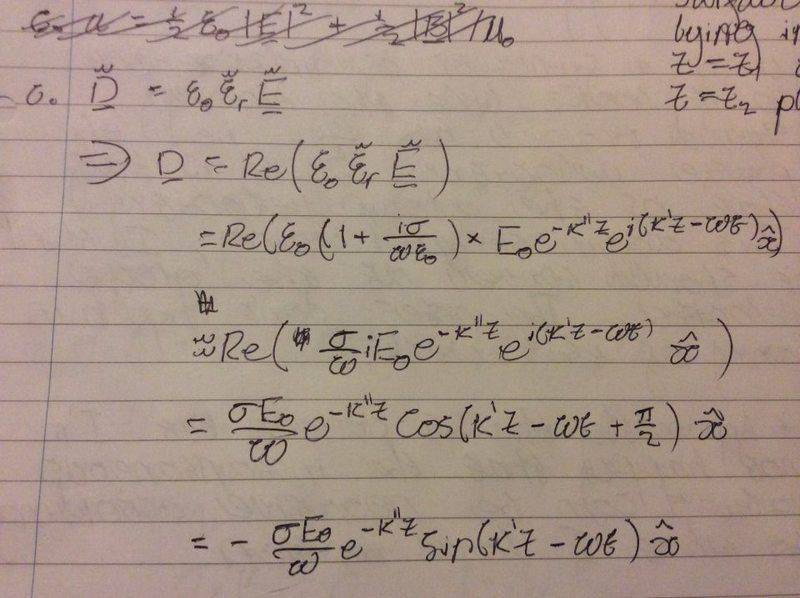 u = ½ ε₀ |E|² + ½ |B|²/μ₀
lying in
z = z₁
z = z₂ pl
c. D̃ = ε₀ ε̃ᵣ Ẽ
⇒ D = Re(ε₀ ε̃ᵣ Ẽ)
= Re(ε₀ (1 + iσ/ωε₀) × E₀ e^{-k''z} e^{i(k'z-ωt)} x̂)
≈ Re( σ/ω i E₀ e^{-k''z} e^{i(k'z-ωt)} x̂ )
= σE₀/ω e^{-k''z} cos(k'z - ωt + π/2) x̂
= - σE₀/ω e^{-k''z} sin(k'z - ωt) x̂